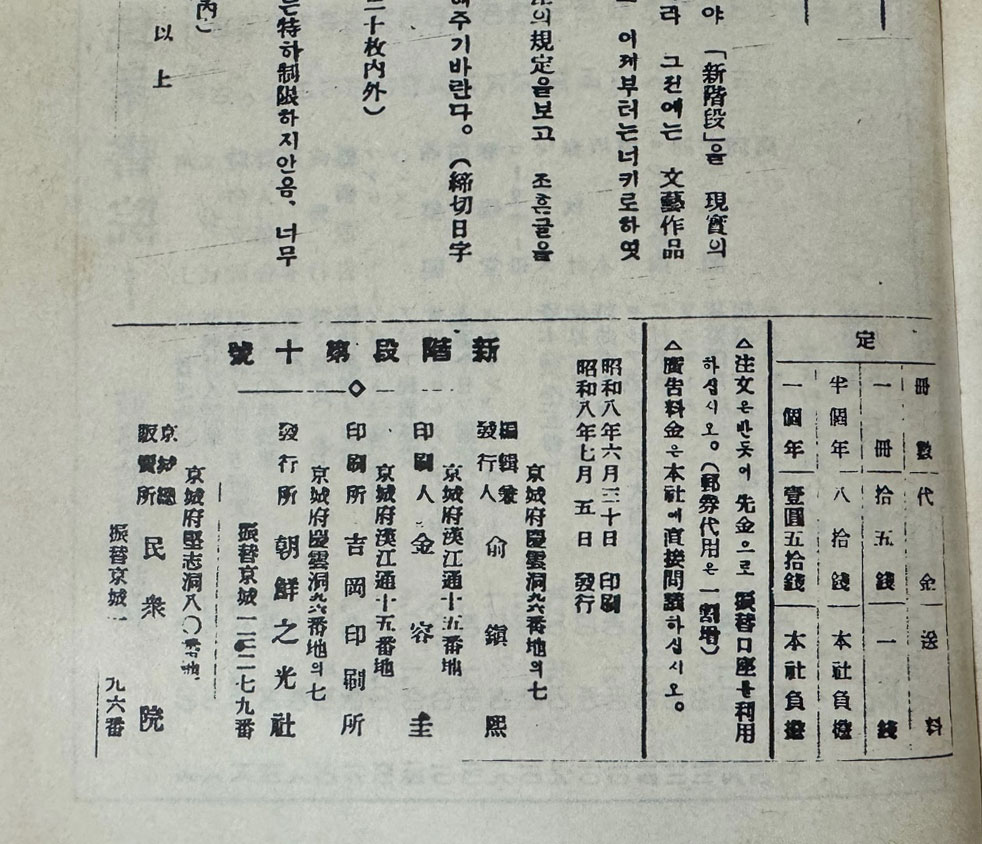 야 「新階段」을 現實의
라 그전에는 文藝作品
이제부터는너키로하엿
의規定을보고 조흔글을
해주기바란다。(締切日字
二十枚內外)
는特히制限하지안음、너무
內)
以上
定
冊數 代金 送料
一冊 拾五錢 一錢
半個年 八拾錢 本社負擔
一個年 壹圓五拾錢 本社負擔
△注文은반듯이 先金으로 振替口座를利用
하십시오。(郵券代用은 一割增)
△廣告料金은本社에直接問議하십시오。
昭和八年六月三十日 印刷
昭和八年七月五日 發行
新階段第十號
京城府慶雲洞九六番地의七
編輯兼發行人 俞鎭熙
京城府漢江通十五番地
印刷人 金容圭
京城府漢江通十五番地
印刷所 吉岡印刷所
京城府慶雲洞九六番地의七
發行所 朝鮮之光社
振替京城一二二七九番
京城府堅志洞八〇番地
京城總販賣所 民衆院
振替京城一 九六番